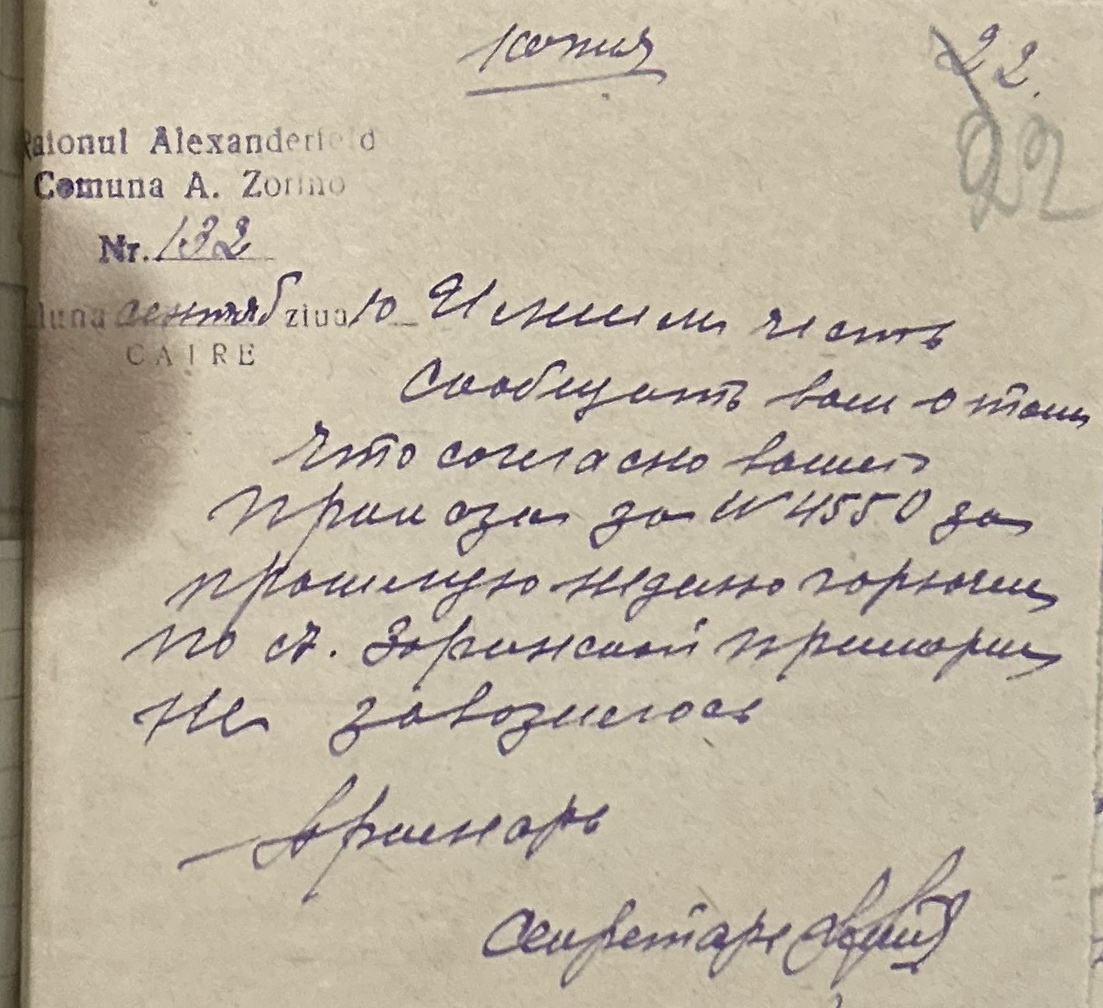 копия
22.
22
Raionul Alexanderfeld
Comuna A. Zorino
Nr. 132
luna сентяб ziua 10
CĂTRE
Имеем честь
сообщить вам о том
что согласно вашего
приказа за № 4550 за
прошлую неделю горючи
по А. Зоринской примари
не завозилось
Примарь
Секретаре